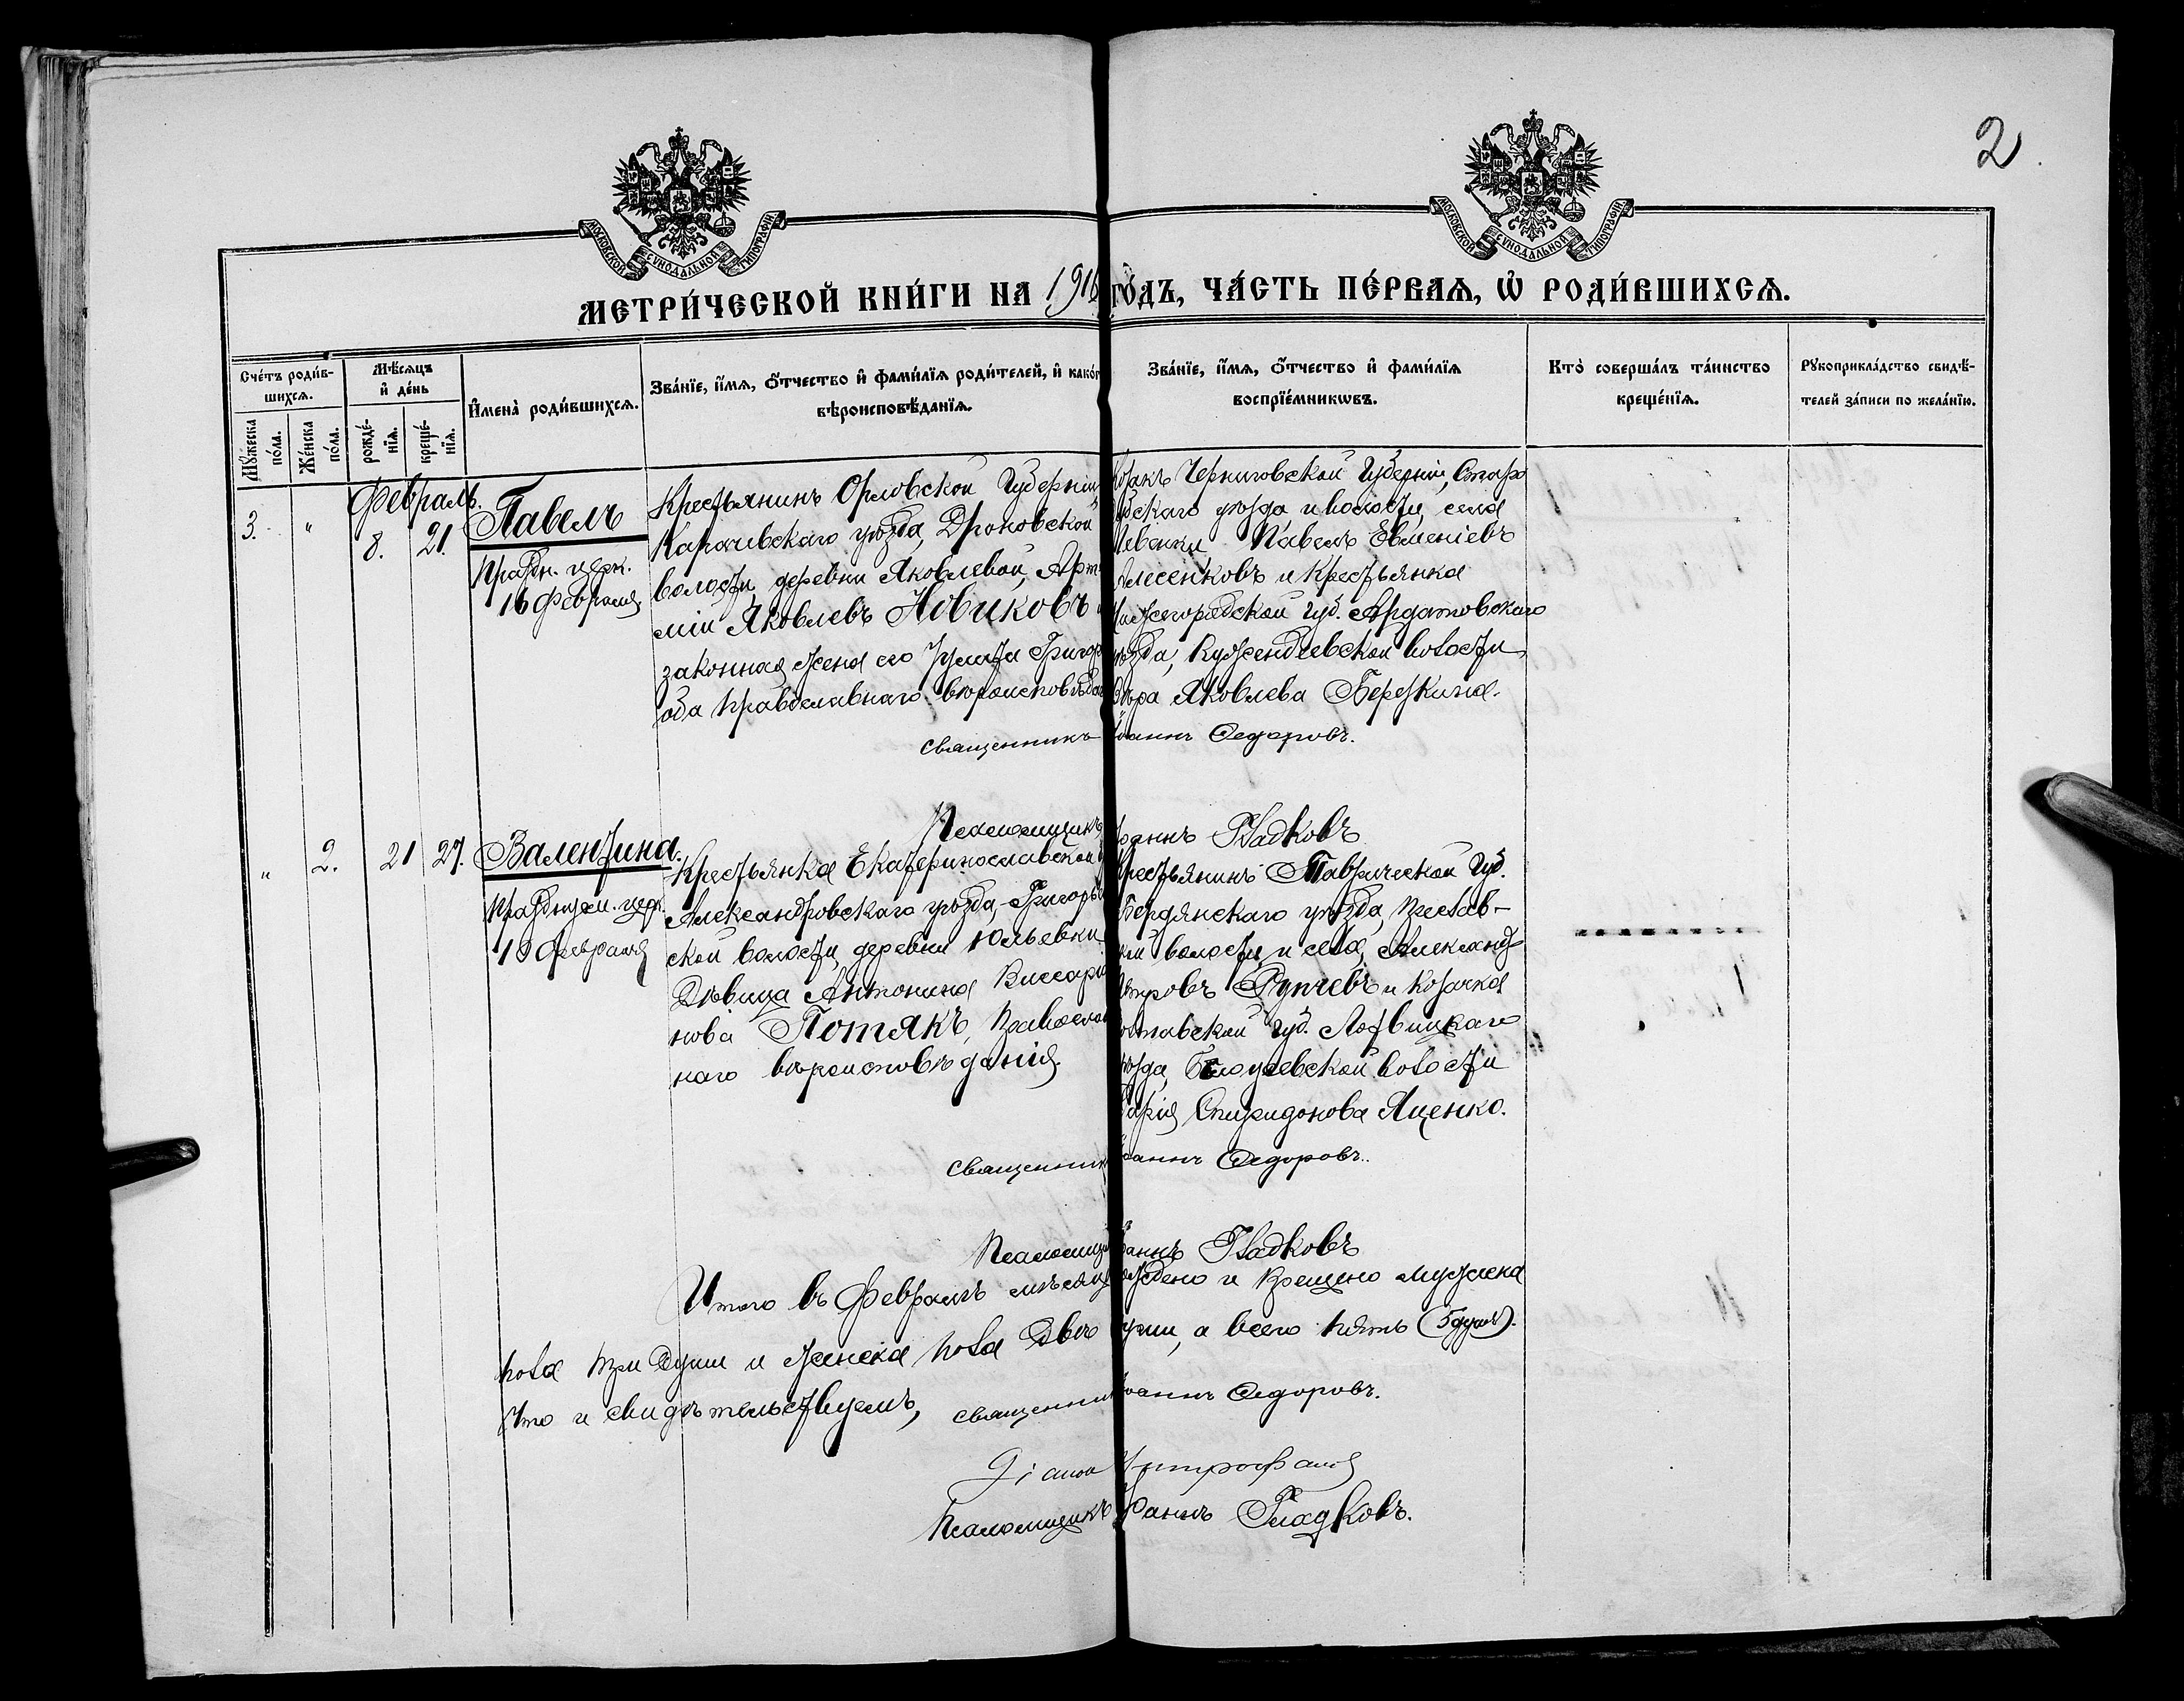 2
МОСКОВСКОЙ СУНОДАЛЬНОЙ ТИПОГРАФІИ
МОСКОВСКОЙ СУНОДАЛЬНОЙ ТИПОГРАФІИ
МЕТРИ́ЧЕСКОЙ КНИ́ГИ НА 1916 ГО́ДЪ, ЧА́СТЬ ПЕ́РВАѦ, Ѡ РОДИ́ВШИХСѦ.
Сче́тъ роди́в-
шихсѧ.
Мꙋ́жеска по́ла.
Же́нска по́ла.
Мѣ́сѧцъ
и҆ де́нь
рожде́-
нїѧ.
креще́-
нїѧ.
И҆мена̀ роди́вшихсѧ.
Зва́нїе, и҆́мѧ, ѻ҆́тчество и҆ фами́лїѧ роди́телей, и҆ како́г
вѣроисповѣ́данїѧ.
Зва́нїе, и҆́мѧ, ѻ҆́тчество и҆ фами́лїѧ
воспрїе́мникѡвъ.
Кто̀ соверша́лъ та́инство
креще́нїѧ.
Рꙋкоприкла́дство свидѣ́-
телей за́писи по жела́нїю.
Февраль.
3. " 8. 21. Павелъ
Праздн. церк.
16 февраля
Крестьянинъ Орловской Губерніи,
Карачевскаго уѣзда, Дроновской
волости, деревни Яковлевой, Арте
мій Яковлевъ Новиковъ и
законная жена его Григор
оба православнаго вѣроисповѣда
Козакъ Черниговской Губерніи, Старо
дубскаго уѣзда и волости, села
Левенки Павелъ Евменіевъ
Алесенковъ и крестьянка
Нижегородской губ. Ардатовскаго
уѣзда, Кужендеевской волости
Вѣра Яковлева Березкина.
Священникъ Іоаннъ Федоровъ.
Псаломщикъ Іоаннъ Гладковъ
" 2. 21 27. Валентина.
Празднуем. церк.
10 февраля
Крестьянка Екатеринославской
Александровскаго уѣзда, Григорьев
ской волости, деревни Юльевки
Дѣвица Антонина Виссаріо
нова Потякъ, Православ
наго вѣроисповѣданія.
Крестьянинъ Таврической Губ.
Бердянскаго уѣзда,
кой волости и села, Александ
Петровъ и козачка
Полтавской губ. Лохвицкаго
уѣзда, волости
Марія Спиридонова Яценко.
Священникъ Іоаннъ Федоровъ.
Псаломщикъ Іоаннъ Гладковъ
Итого въ Февралѣ мѣсяцѣ рождено и крещено мужеска
пола три души и женска пола двѣ души, а всего пять (5 душъ).
Что и свидѣтельствуемъ, Священникъ Іоаннъ Федоровъ.
Псаломщикъ Іоаннъ Гладковъ.